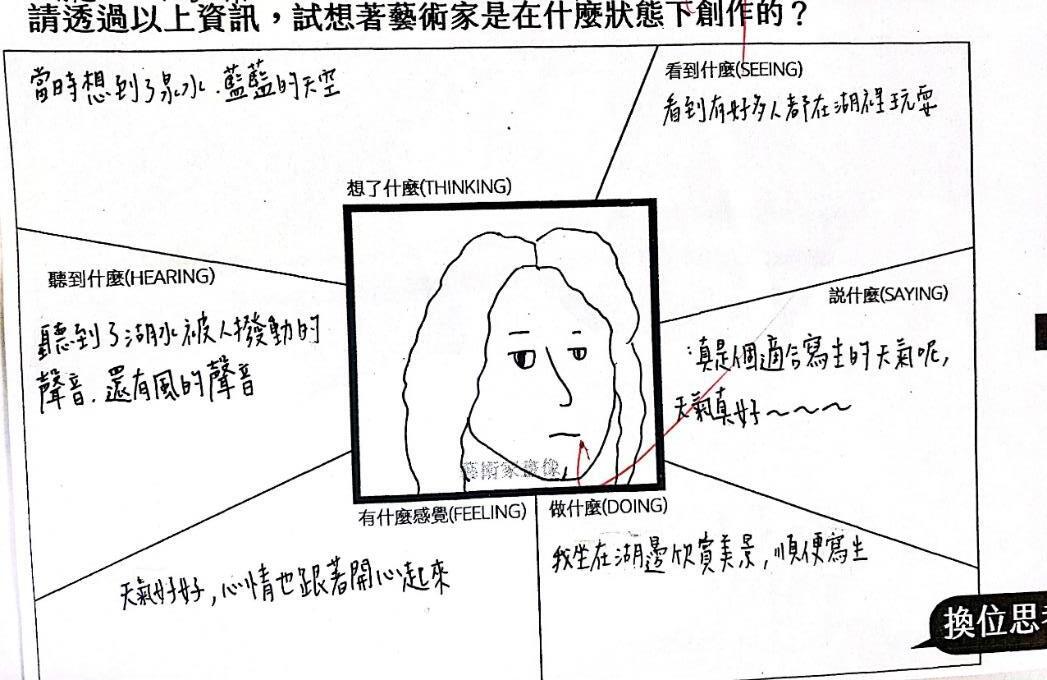 請透過以上資訊，試想著藝術家是在什麼狀態下創作的？
當時想到了泉水.藍藍的天空
想了什麼(THINKING)
看到什麼(SEEING)
看到有好多人都在湖裡玩耍
聽到什麼(HEARING)
聽到了湖水被人撥動的
聲音.還有風的聲音
說什麼(SAYING)
:真是個適合寫生的天氣呢,
天氣真好～～～
藝術家畫像
有什麼感覺(FEELING)
天氣好好,心情也跟著開心起來
做什麼(DOING)
我坐在湖邊欣賞美景,順便寫生
換位思考